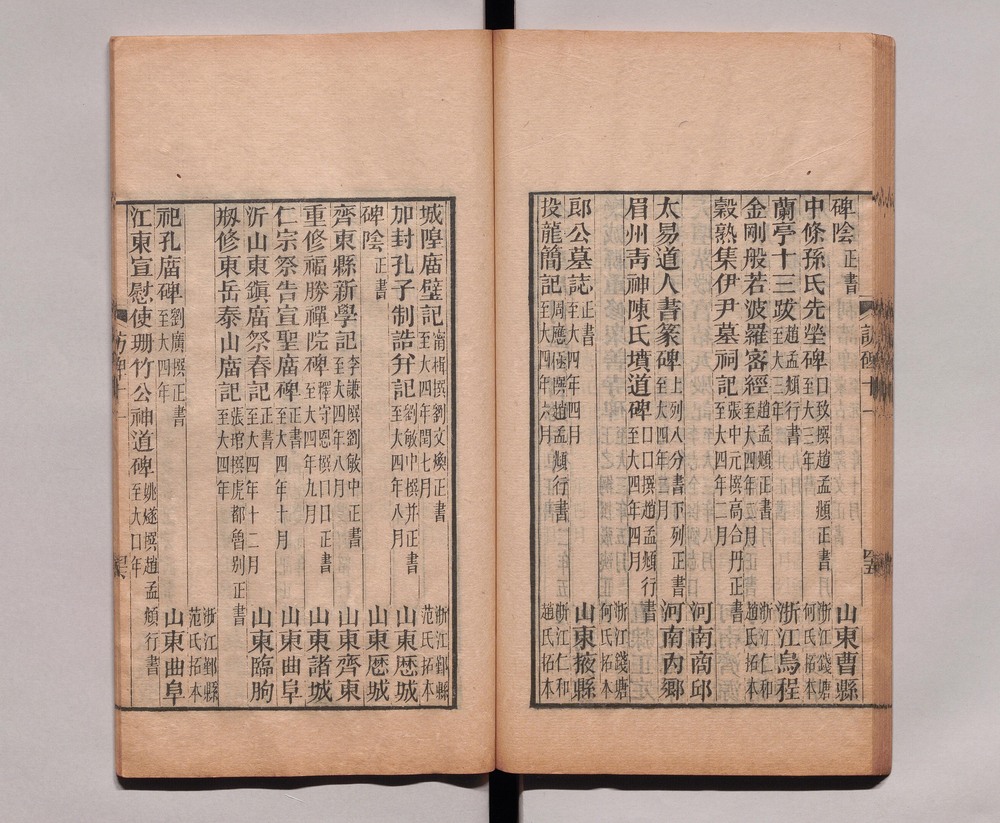 碑陰正書 山東曹縣
中條孫氏先塋碑口致撰趙孟頫正書至大三年 浙江錢塘何氏拓本
蘭亭十三跋趙孟頫行書至大三年 浙江烏程
金剛般若波羅密經趙孟頫正書至大四年正月 浙江仁和趙氏拓本
穀熟集伊尹墓祠記張中元撰高合丹正書至大四年二月 河南商邱
太易道人書篆碑上列八分書下列正書至大四年月 河南內鄉
眉州青神陳氏墳道碑口口撰趙孟頫行書至大四年四月 浙江錢塘何氏拓本
郎公墓誌正書至大四年四月 山東掖縣
投龍簡記周應極撰趙孟頫行書至大四年六月 浙江仁和趙氏拓本
訪碑十一
城隍廟壁記甯楫撰劉文煥正書至大四年閏七月 浙江鄞縣范氏拓本
加封孔子制誥并記劉敏中撰并正書至大四年八月 山東歷城
碑陰正書 山東歷城
齊東縣新學記李謙撰劉敏中正書至大四年八月 山東齊東
重修福勝禪院碑釋守恩撰口口正書至大四年九月 山東諸城
仁宗祭告宣聖廟碑正書至大四年十月 山東曲阜
沂山東鎮廟祭春記正書至大四年十二月 山東臨朐
剏修東岳泰山廟記張琯撰虎都魯别正書至大四年 浙江鄞縣范氏拓本
祀孔廟碑劉廣撰正書至大四年 山東曲阜
江東宣慰使珊竹公神道碑姚燧撰趙孟頫行書至大口年